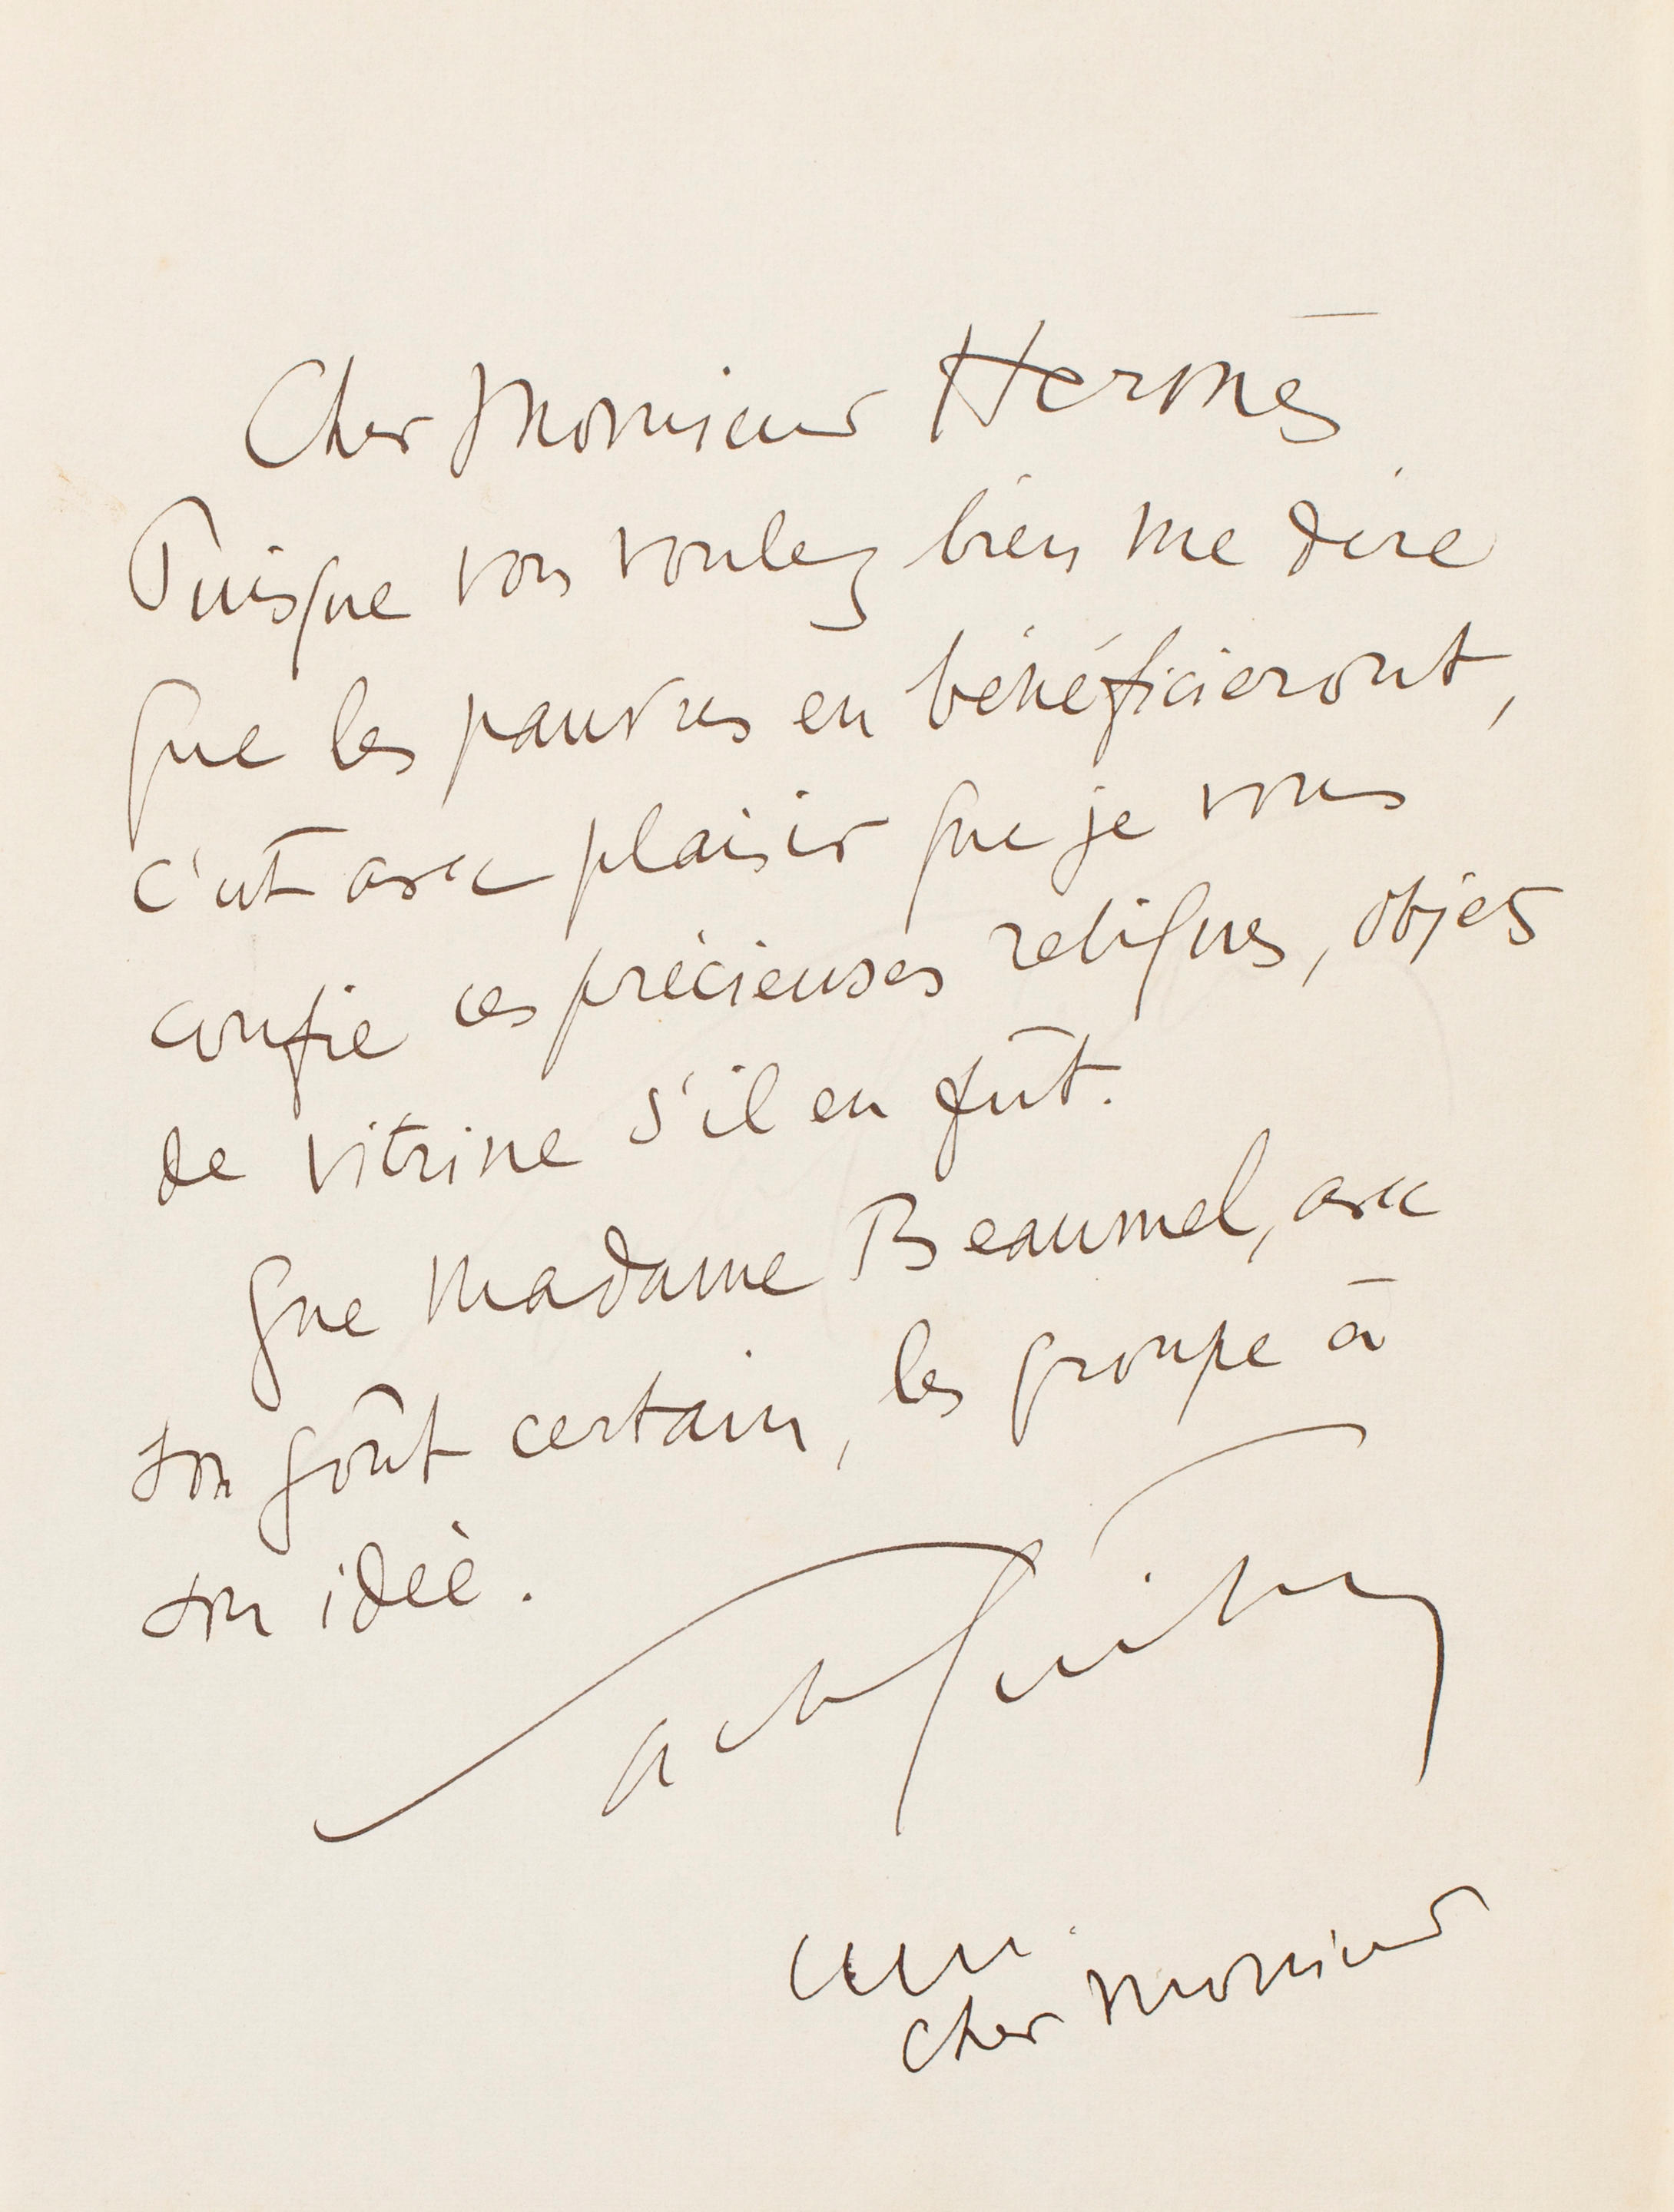 Cher Monsieur Hermès
Puisque vous voulez bien me dire
que les pauvres en bénéficieront,
c'est avec plaisir que je vous
confie ces précieuses reliques, objets
de vitrine s'il en fût.
Que Madame Beaumel, avec
son goût certain, les groupe à
son idée.
Sacha Guitry
Cher Monsieur